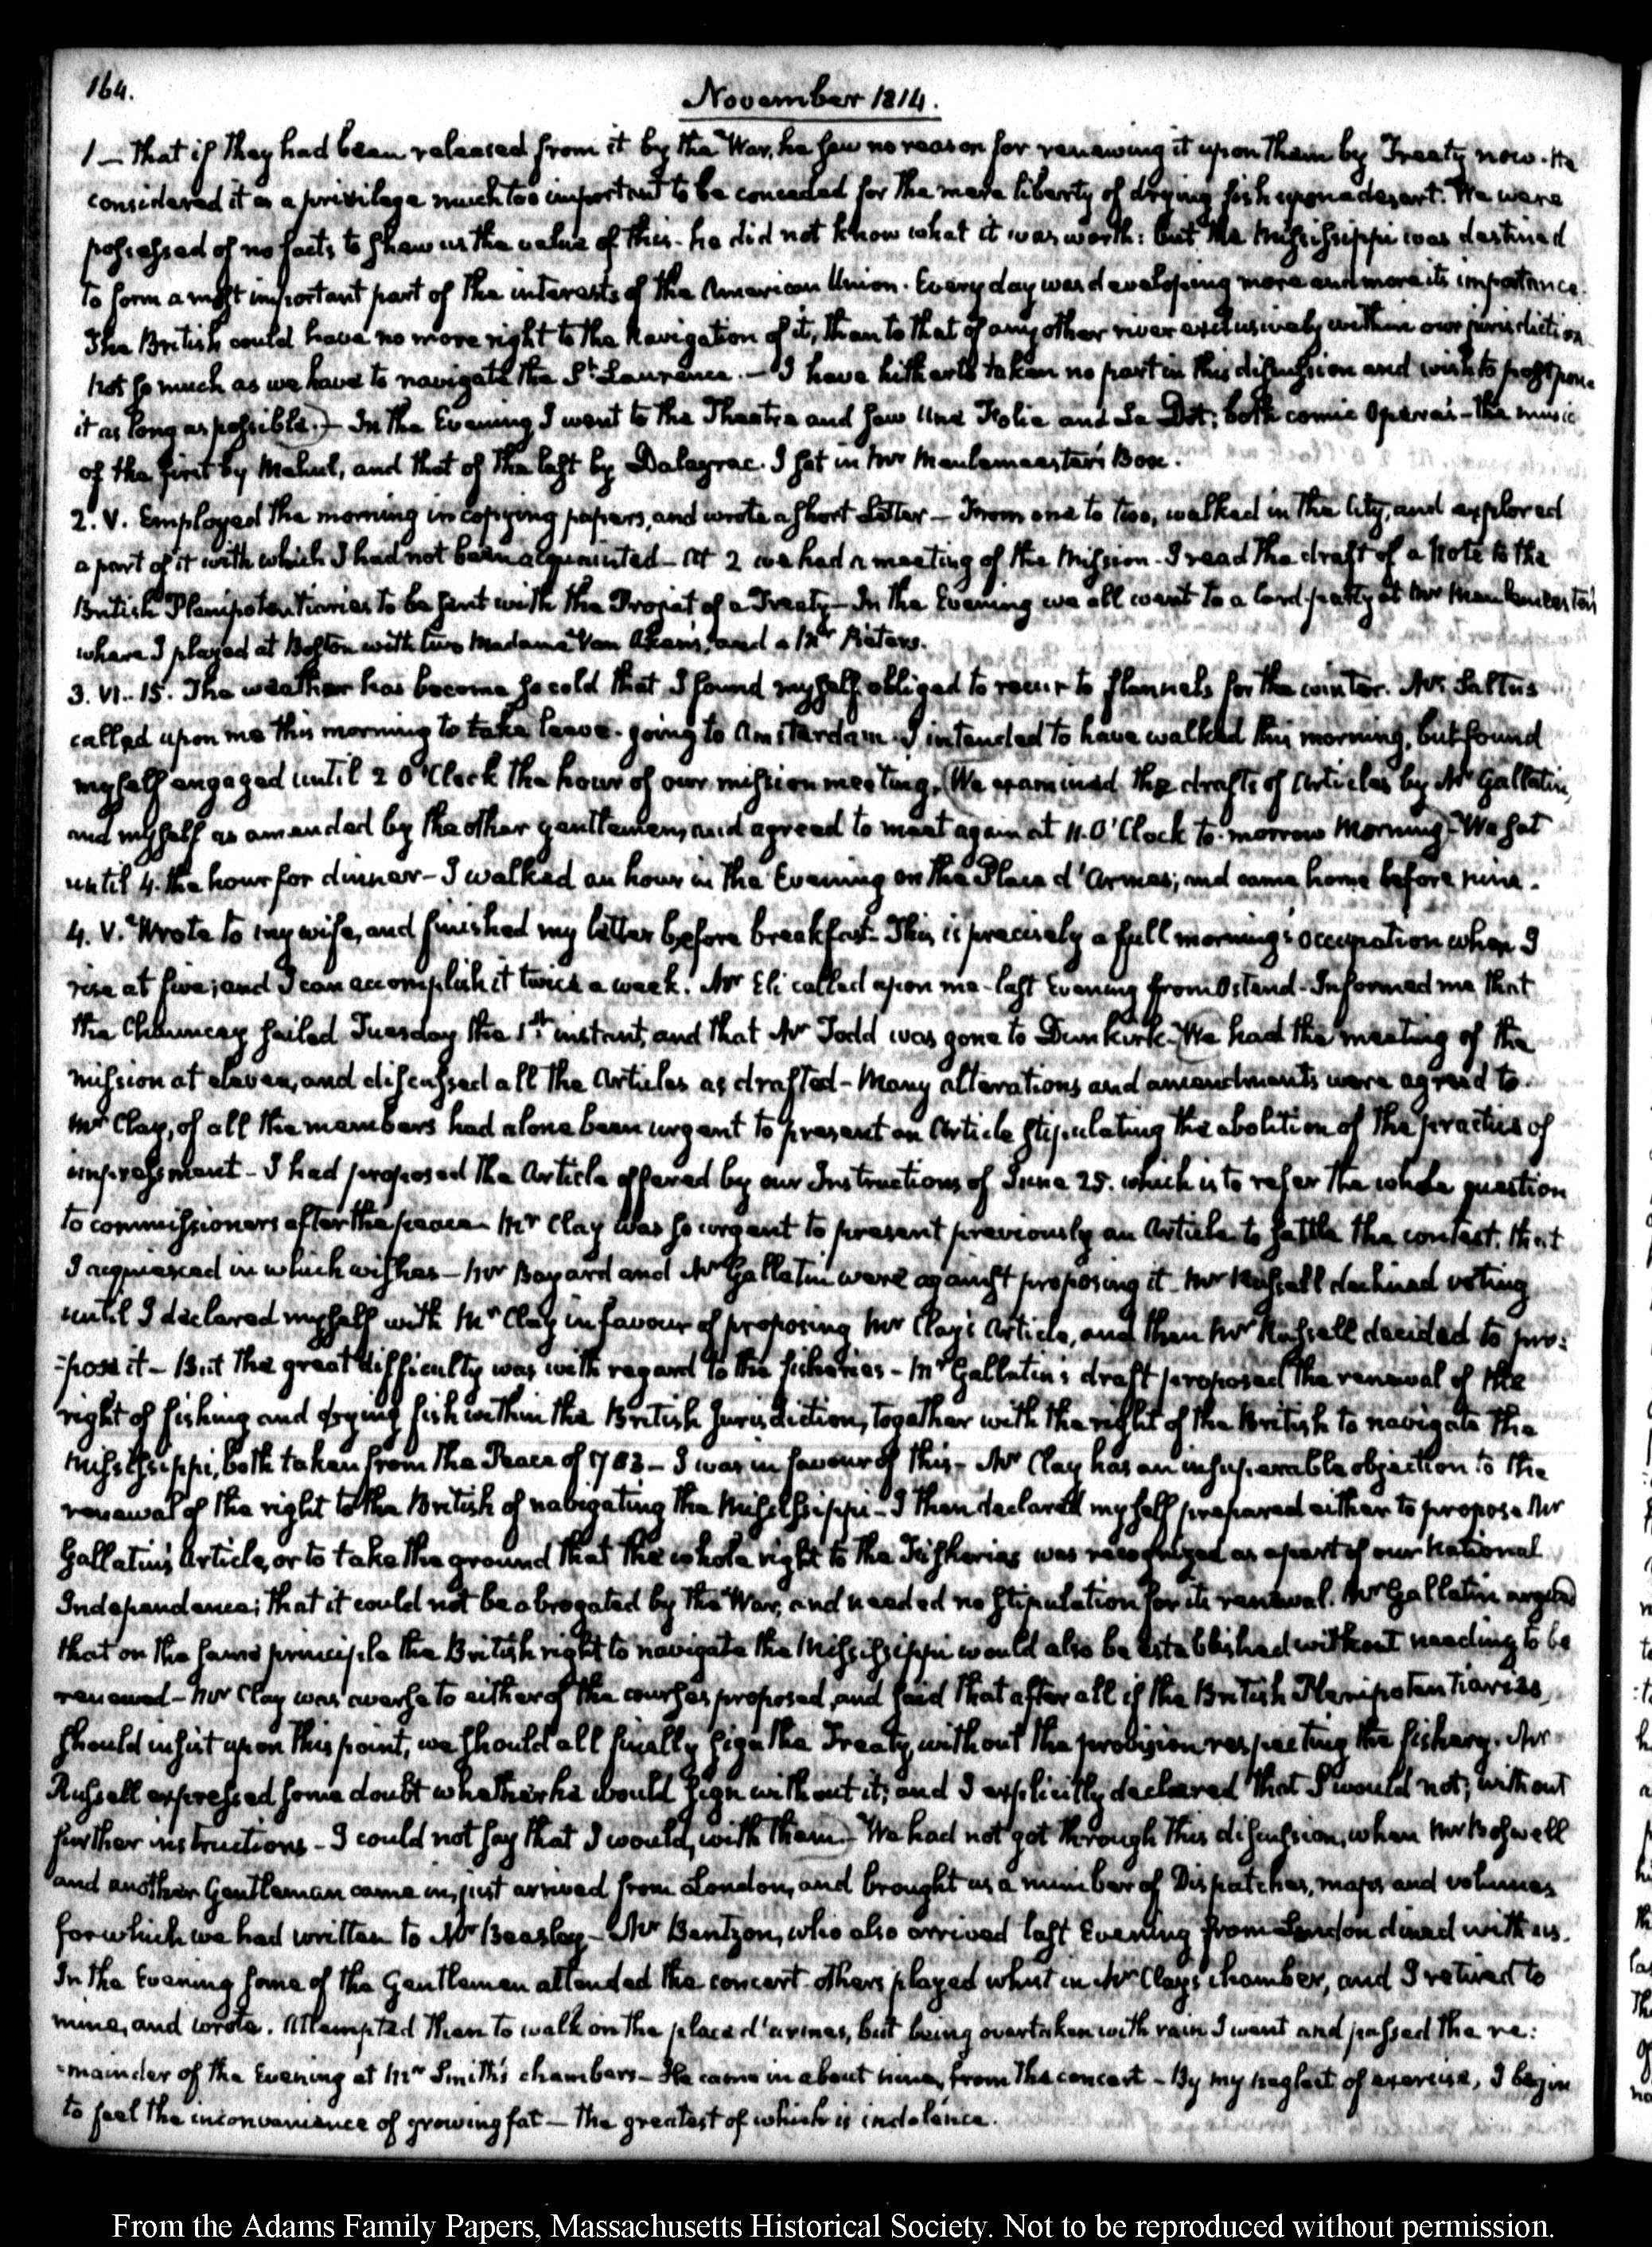 164.
November 1814.
1 — that if they had been released from it by the War, he saw no reason for renewing it upon them by Treaty now. He
considered it as a privilege much too important to be conceded for the mere liberty of drying fish upon a desert. We were
possessed of no facts to shew us the value of this - he did not know what it was worth: but the Mississippi was destined
to form a most important part of the interests of the American Union. Every day was developing more and more its importance.
The British could have no more right to the Navigation of it, than to that of any other river exclusively within our jurisdiction
not so much as we have to navigate the St. Laurence. — I have hitherto taken no part in this discussion and wish to postpone
it as long as possible.) — In the Evening I went to the Theatre and saw Une Folie and La Dot; both comic Opera's - the music
of the first by Mehul, and that of the last by Dalayrac. I sat in Mr Meulemeester's Box.
2. V. Employed the morning in copying papers, and wrote a short Letter — From one to two, walked in the City, and explored
a part of it with which I had not been acquainted - At 2 we had a meeting of the Mission - I read the draft of a Note to the
British Plenipotentiaries to be sent with the Projet of a Treaty - In the Evening we all went to a Card party at Mr Meulemeester's
where I played at Boston with two Madame Van Aken's, and a Mr Pieters.
3. VI. 15. The weather has become so cold that I found myself obliged to recur to flannels for the winter. Mr Saltus
called upon me this morning to take leave - going to Amsterdam. I intended to have walked this morning, but found
myself engaged until 2 O'Clock the hour of our mission meeting. (We examined the drafts of Articles by Mr Gallatin,
and myself as amended by the other gentlemen, and agreed to meet again at 11. O'Clock to-morrow Morning - We sat
until 4. the hour for dinner - I walked an hour in the Evening on the Place d'Armes; and came home before nine.
4. V. Wrote to my wife, and finished my letter before breakfast - This is precisely a full morning's occupation when I
rise at five; and I can accomplish it twice a week. Mr Eli called upon me last Evening from Ostend - Informed me that
the Chauncey sailed Tuesday the 1st instant, and that Mr Todd was gone to Dunkirk - (We had the meeting of the
mission at eleven, and discussed all the Articles as drafted - Many alterations and amendments were agreed to.
Mr Clay, of all the members had alone been urgent to present an Article stipulating the abolition of the practice of
impressment - I had proposed the Article offered by our Instructions of June 25. which is to refer the whole question
to commissioners after the peace - Mr Clay was so urgent to present previously an Article to settle the contest, that
I acquiesced in which wishes - Mr Bayard and Mr Gallatin were against proposing it - Mr Russell declined voting
until I declared myself with Mr Clay in favour of proposing Mr Clay's Article, and then Mr Russell decided to pro:
-pose it - But the great difficulty was with regard to the fisheries - Mr Gallatin's draft proposed the renewal of the
right of fishing and drying fish within the British Jurisdiction, together with the right of the British to navigate the
Mississippi, both taken from the Peace of 1783 - I was in favour of this - Mr Clay has an insuperable objection to the
renewal of the right to the British of navigating the Mississippi - I then declared myself prepared either to propose Mr
Gallatin's Article, or to take the ground that the whole right to the Fisheries was recognized as a part of our National
Independence; that it could not be abrogated by the War, and needed no stipulation for its renewal. Mr Gallatin argued
that on the same principle the British right to navigate the Mississippi would also be established without needing to be
renewed - Mr Clay was averse to either of the courses proposed, and said that after all if the British Plenipotentiaries
should insist upon this point, we should all finally sign the Treaty, without the provision respecting the fishery. Mr
Russell expressed some doubt whether he would sign without it; and I explicitly declared that I would not, without
further instructions - I could not say that I would, with them.) - We had not got through this discussion, when Mr Boswell
and another Gentleman came in, just arrived from London, and brought us a number of Dispatches, maps and volumes
for which we had written to Mr Beasley - Mr Bentzon, who also arrived last Evening from London dined with us.
In the Evening some of the Gentlemen attended the concert - others played whist in Mr Clay's chamber, and I retired to
mine, and wrote. Attempted then to walk on the place d'armes, but being overtaken with rain I went and passed the re:
-mainder of the Evening at Mr Smith's chambers - He came in about nine, from the concert - By my neglect of exercise, I begin
to feel the inconvenience of growing fat - the greatest of which is indolence.
From the Adams Family Papers, Massachusetts Historical Society. Not to be reproduced without permission.